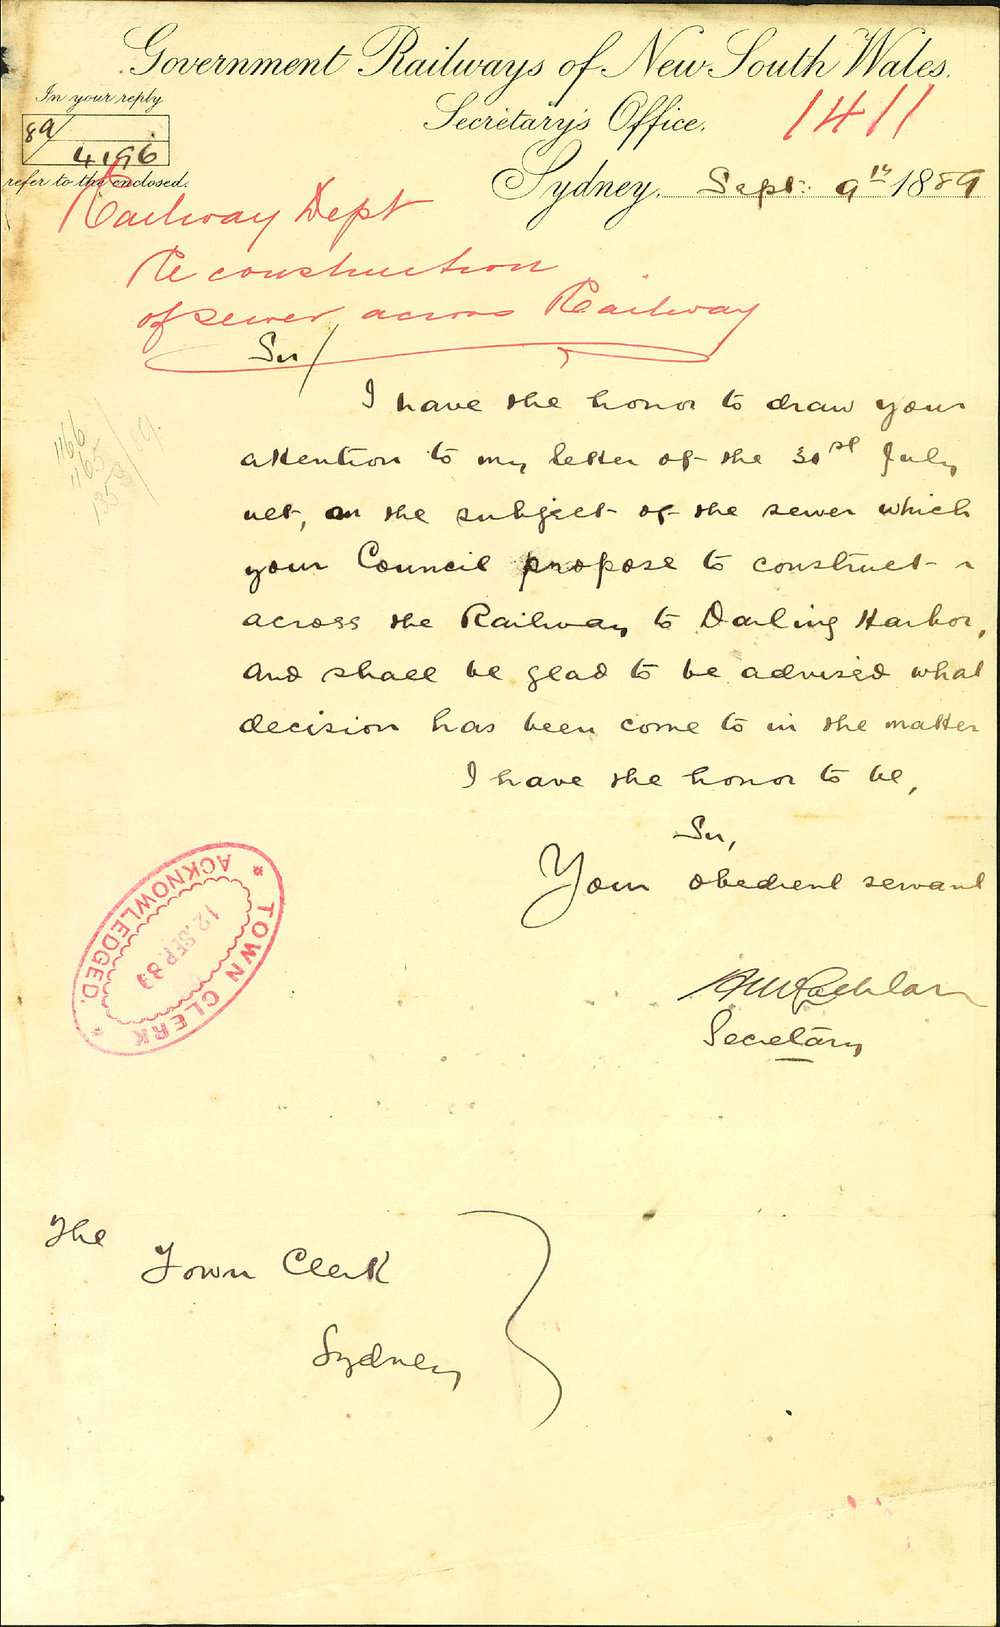 Government Railways of New South Wales.
In your reply
Secretary's Office.
1411
89/
4196
refer to the enclosed.
Sydney, Sept: 9th 1889
Railway Dept
Re construction
of sewer across Railway
Sir/
I have the honor to draw your
attention to my letter of the 30st July
ult, on the subject of the sewer which
your Council propose to construct
across the Railway to Darling Harbor,
and shall be glad to be advised what
decision has been come to in the matter
I have the honor to be,
Sir,
Your obedient servant
H McLachlan
Secretary
1166
1165
135
89.
TOWN CLERK
12. SEP. 89
ACKNOWLEDGED.
The
Town Clerk
Sydney